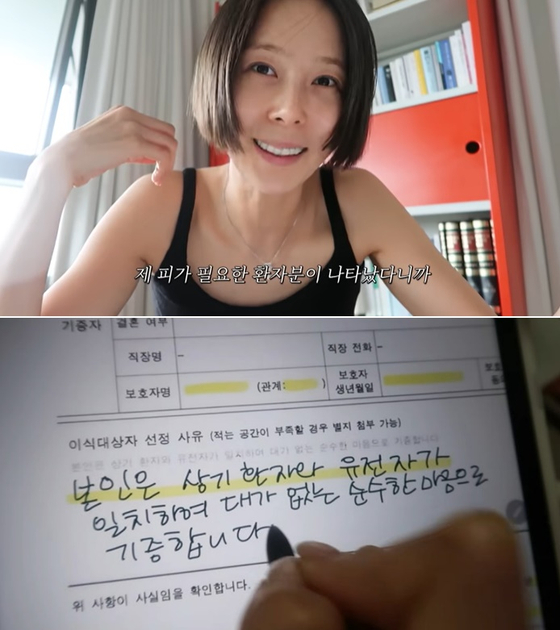 제 피가 필요한 환자분이 나타났다니까
기증자
결혼 여부
직장명
–
직장 전화
–
보호자명
(관계:
)
보호자
생년월일
보호
이식대상자 선정 사유 (적는 공간이 부족할 경우 별지 첨부 가능)
본인은 상기 환자와 유전자가 일치하여 대가 없는 순수한 마음으로 기증합니다
본인은 상기 환자와 유전자가
일치하여 대가 없는 순수한 마음으로
기증합니다
위 사항이 사실임을 확인합니다.